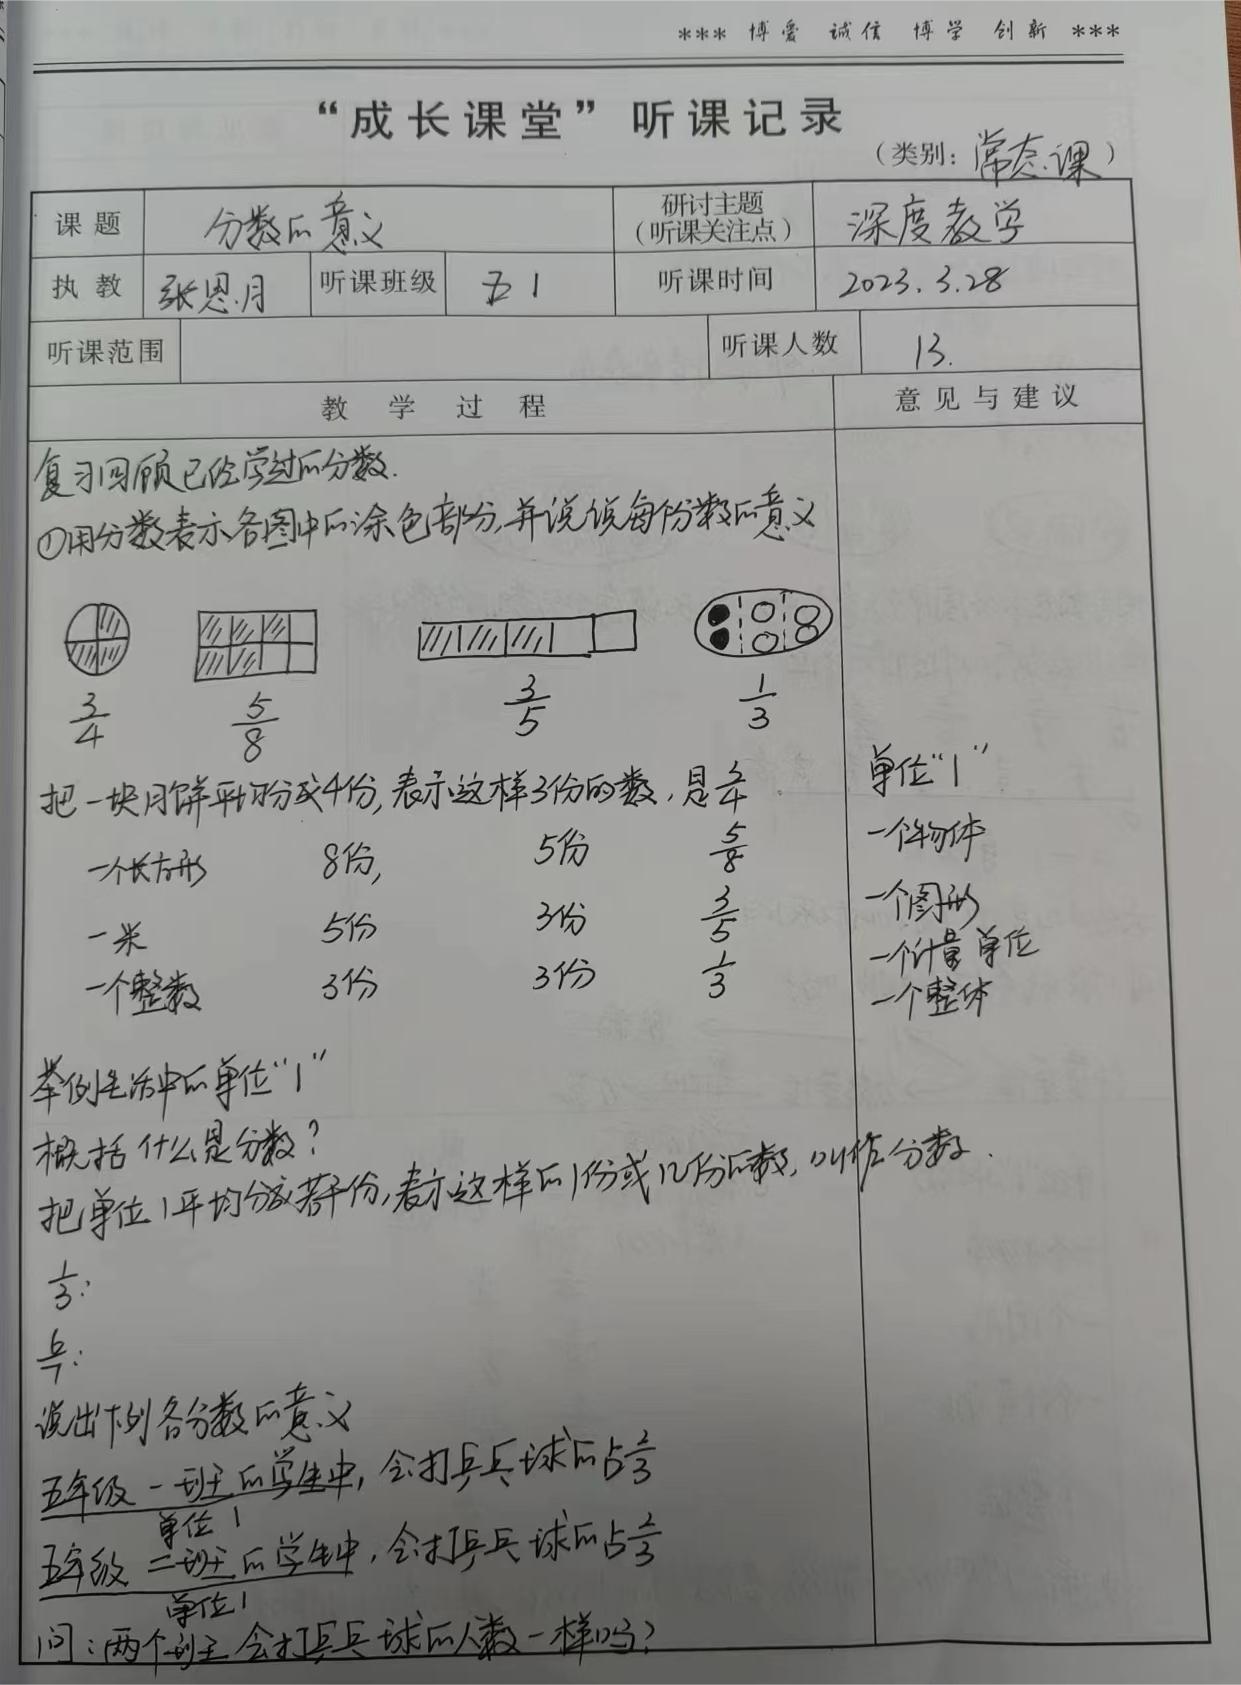 *** 博爱 诚信 博学 创新 ***
“成长课堂”听课记录
（类别：常态课）
课题 分数的意义 研讨主题（听课关注点） 深度教学
执教 张恩月 听课班级 五1 听课时间 2023.3.28
听课范围 听课人数 13.
教学过程 意见与建议
复习回顾已经学过的分数.
①用分数表示各图中的涂色部分,并说说每份数的意义
3/4 5/8 3/5 1/3
把一块月饼平均分成4份,表示这样3份的数,是3/4 单位“1”
一个长方形 8份, 5份 5/8 一个物体
一米 5份 3份 3/5 一个图形
一个计量单位
一个整数 3份 3份 1/3 一个整体
举例生活中的单位“1”
概括什么是分数?
把单位1平均分成若干份,表示这样的1份或几份的数,叫作分数.
1/3:
6/7:
说出下列各分数的意义
五年级一班的学生中,会打乒乓球的占2/3
单位1
五年级二班的学生中,会打乒乓球的占2/3
单位1
问:两个班会打乒乓球的人数一样吗?